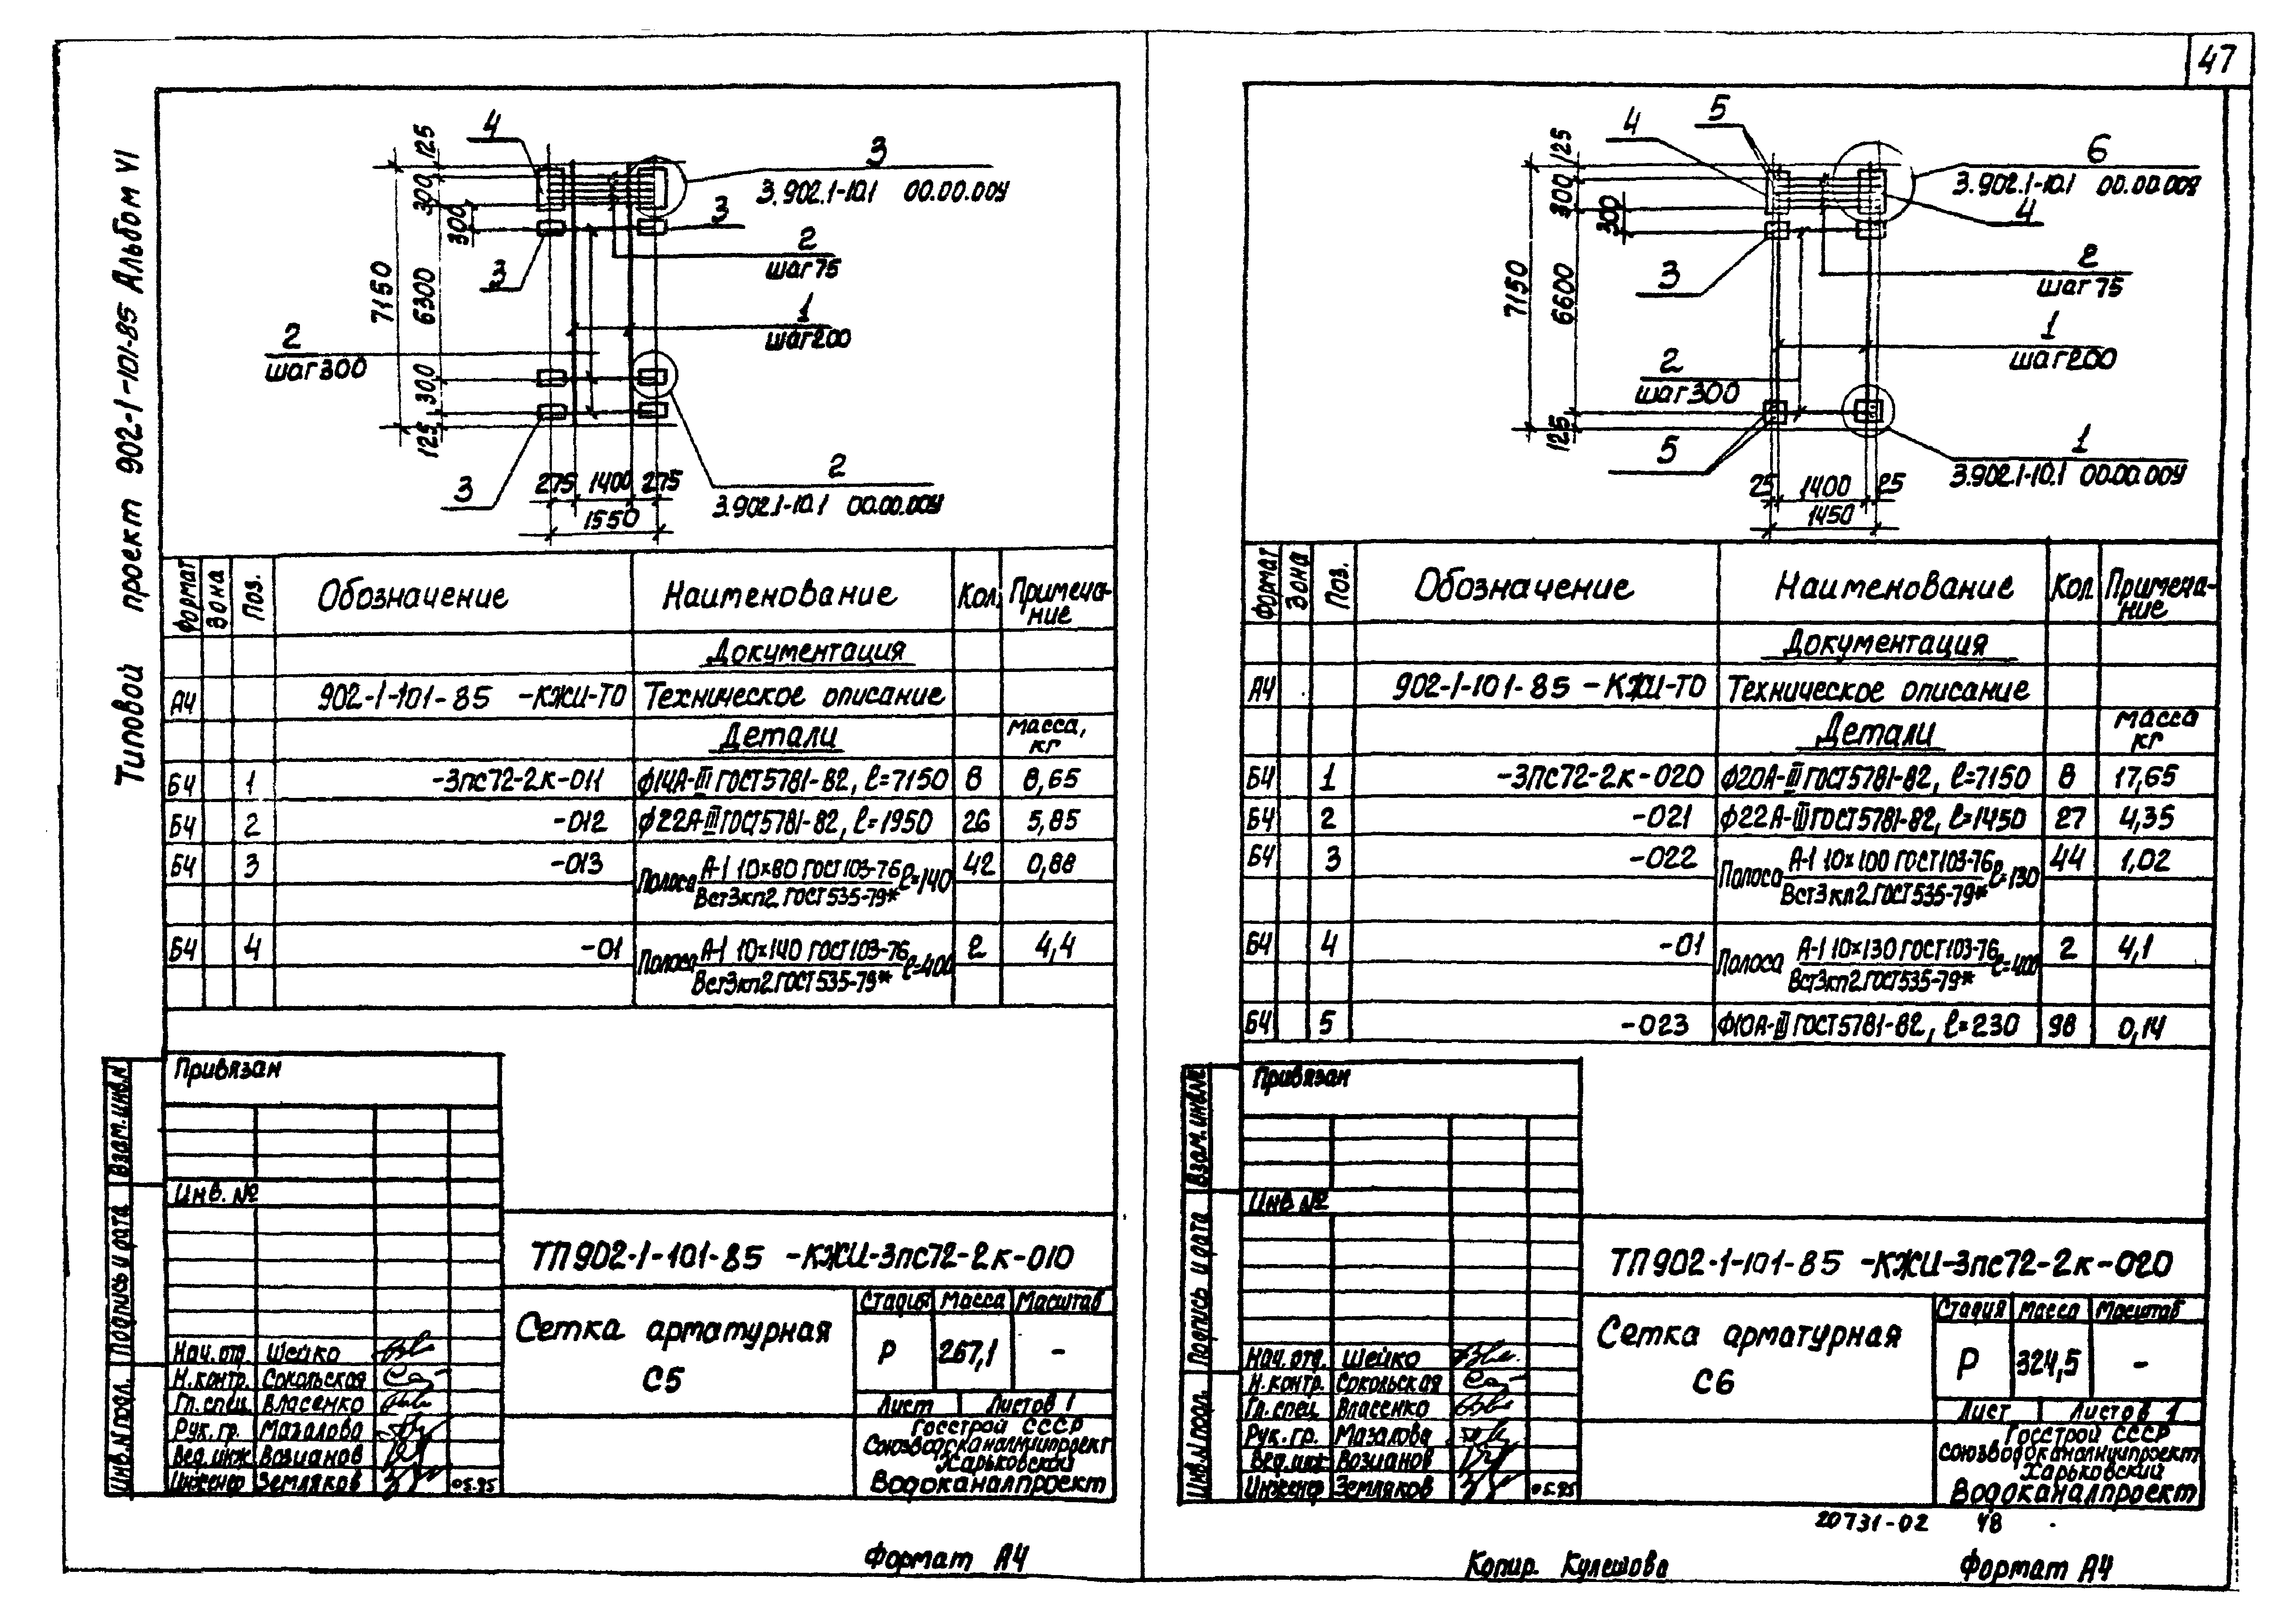 47
Типовой проект 902-1-101-85 Альбом VI
4
3
3.902.1-10.1 00.00.00У
3
2
шаг 75
3
1
шаг 200
2
шаг 300
3
2
3.902.1-10.1 00.00.00У
125
300
300
7150
6300
300
125
275 1400 275
1550
Формат Зона Поз. Обозначение Наименование Кол. Примеча-
ние
Документация
А4 902-1-101-85 -КЖИ-ТО Техническое описание
Детали масса,
кг
Б4 1 -3пс72-2к-011 ф14А-III ГОСТ5781-82, ℓ=7150 8 8,65
Б4 2 -012 ф22А-III ГОСТ5781-82, ℓ=1950 26 5,85
Б4 3 -013 Полоса А-1 10×80 ГОСТ103-76 ℓ=140 42 0,88
Вст3кп2 ГОСТ535-79*
Б4 4 -01 Полоса А-1 10×140 ГОСТ103-76 ℓ=400 2 4,4
Вст3кп2 ГОСТ535-79*
Привязан
Инв. №
Взам.инв.N
Подпись и дата
Инв.N подл.
ТП902-1-101-85 -КЖИ-3пс72-2к-010
Сетка арматурная
С5
Стадия Масса Масштаб
Р 267,1 -
Лист Листов 1
Нач. отд. Шейко
Н.контр. Сокольская
Гл.спец Власенко
Рук. гр. Мазалова
Вед.инж Возианов
Инженер Земляков 05.85
Госстрой СССР
Союзводоканалниипроект
Харьковский
Водоканалпроект
Формат А4
5
4
6
3.902.1-10.1 00.00.00У
4
3
2
шаг 75
1
шаг 200
2
шаг 300
5
1
3.902.1-10.1 00.00.00У
125
300
300
7150
6600
125
25 1400 25
1450
Формат Зона Поз. Обозначение Наименование Кол Примеча-
ние
Документация
А4 902-1-101-85 -КЖИ-ТО Техническое описание
Детали масса
кг
Б4 1 -3пс72-2к-020 ф20А-III ГОСТ5781-82, ℓ=7150 8 17,65
Б4 2 -021 ф22А-III ГОСТ5781-82, ℓ=1450 27 4,35
Б4 3 -022 Полоса А-1 10×100 ГОСТ103-76 ℓ=130 44 1,02
Вст3кп2 ГОСТ535-79*
Б4 4 -01 Полоса А-1 10×130 ГОСТ103-76 ℓ=400 2 4,1
Вст3кп2 ГОСТ535-79*
Б4 5 -023 ф10А-III ГОСТ5781-82, ℓ=230 98 0,14
Привязан
Инв №
Взам.инв.№
Подпись и дата
Инв.N подл.
ТП902-1-101-85 -КЖИ-3пс72-2к-020
Сетка арматурная
С6
Стадия масса Масштаб
Р 324,5 -
Лист Листов 1
Нач. отд. Шейко
Н.контр. Сокольская
Гл.спец Власенко
Рук. гр. Мазалова
Вед.инж Возианов
Инженер Земляков 05.85
Госстрой СССР
Союзводоканалниипроект
Харьковский
Водоканалпроект
20731-02 48
Копир. Кулешова
Формат А4